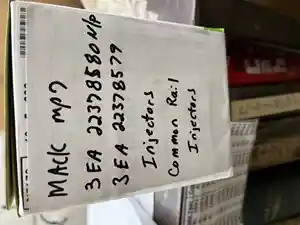 MACK MP7
3 EA 22378580 N/P
3 EA 22378579
Injectors
Common Rail
Injectors